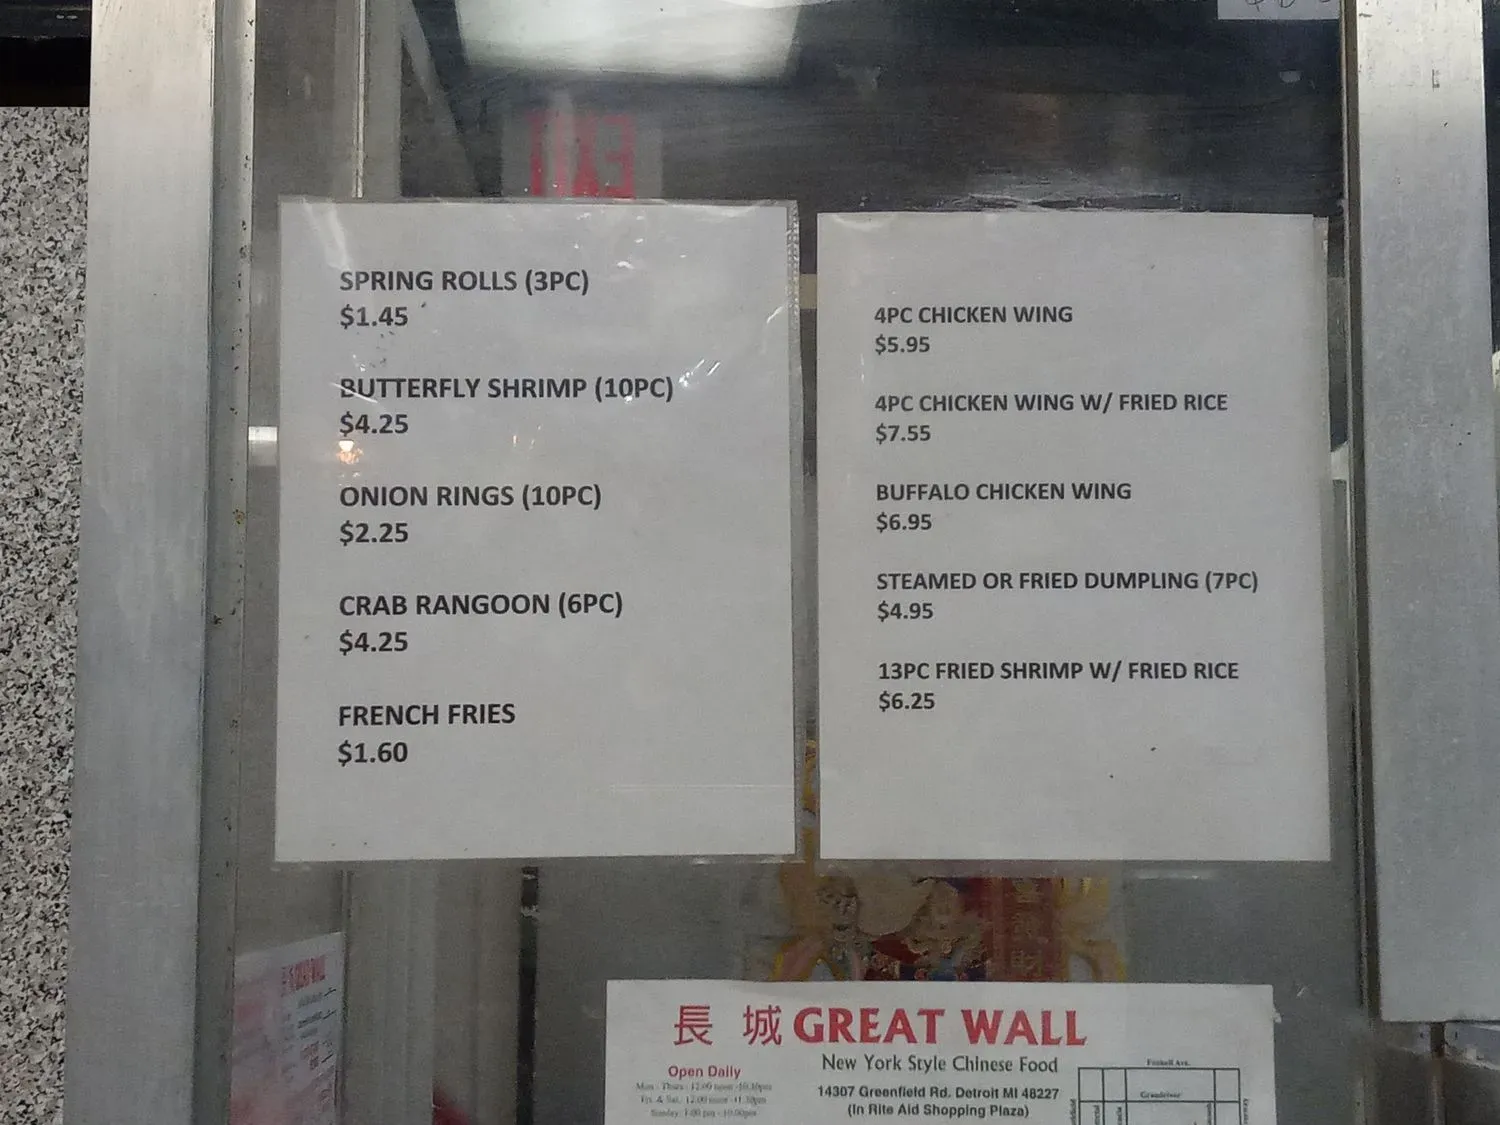 EXIT
SPRING ROLLS (3PC)
$1.45
BUTTERFLY SHRIMP (10PC)
$4.25
ONION RINGS (10PC)
$2.25
CRAB RANGOON (6PC)
$4.25
FRENCH FRIES
$1.60
4PC CHICKEN WING
$5.95
4PC CHICKEN WING W/ FRIED RICE
$7.55
BUFFALO CHICKEN WING
$6.95
STEAMED OR FRIED DUMPLING (7PC)
$4.95
13PC FRIED SHRIMP W/ FRIED RICE
$6.25
長 城 GREAT WALL
New York Style Chinese Food
14307 Greenfield Rd. Detroit MI 48227
(In Rite Aid Shopping Plaza)
Open Daily
Mon - Thurs: 12:00 noon -10:30pm
Fri. & Sat.: 12:00 noon -11:30pm
Sunday: 1:00 pm -10:00pm